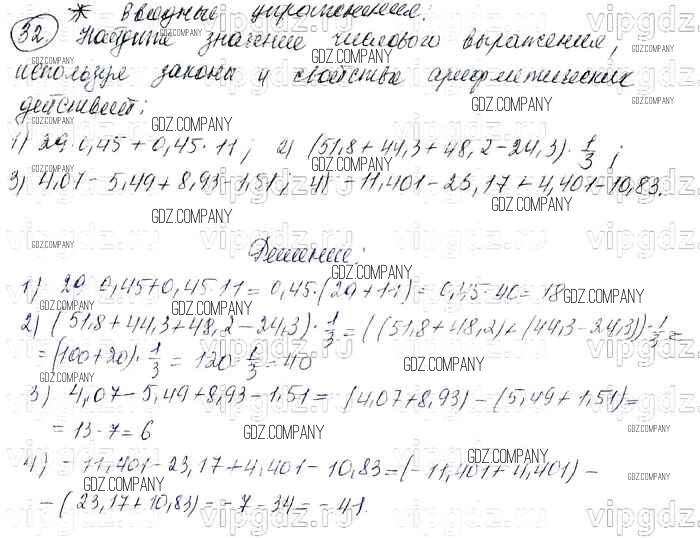 * Вводные упражнения:
32. Найдите значение числового выражения,
используя законы и свойства арифметических
действий:
1) 29·0,45 + 0,45·11; 2) (51,8 + 44,3 + 48,2 - 24,3)·1/3;
3) 4,07 - 5,49 + 8,93 - 1,51; 4) -11,401 - 23,17 + 4,401 - 10,83.
Решение:
1) 29·0,45 + 0,45·11 = 0,45·(29 + 11) = 0,45·40 = 18
2) (51,8 + 44,3 + 48,2 - 24,3)·1/3 = ((51,8 + 48,2) + (44,3 - 24,3))·1/3 =
= (100 + 20)·1/3 = 120·1/3 = 40
3) 4,07 - 5,49 + 8,93 - 1,51 = (4,07 + 8,93) - (5,49 + 1,51) =
= 13 - 7 = 6
4) -11,401 - 23,17 + 4,401 - 10,83 = (-11,401 + 4,401) -
- (23,17 + 10,83) = -7 - 34 = -41.